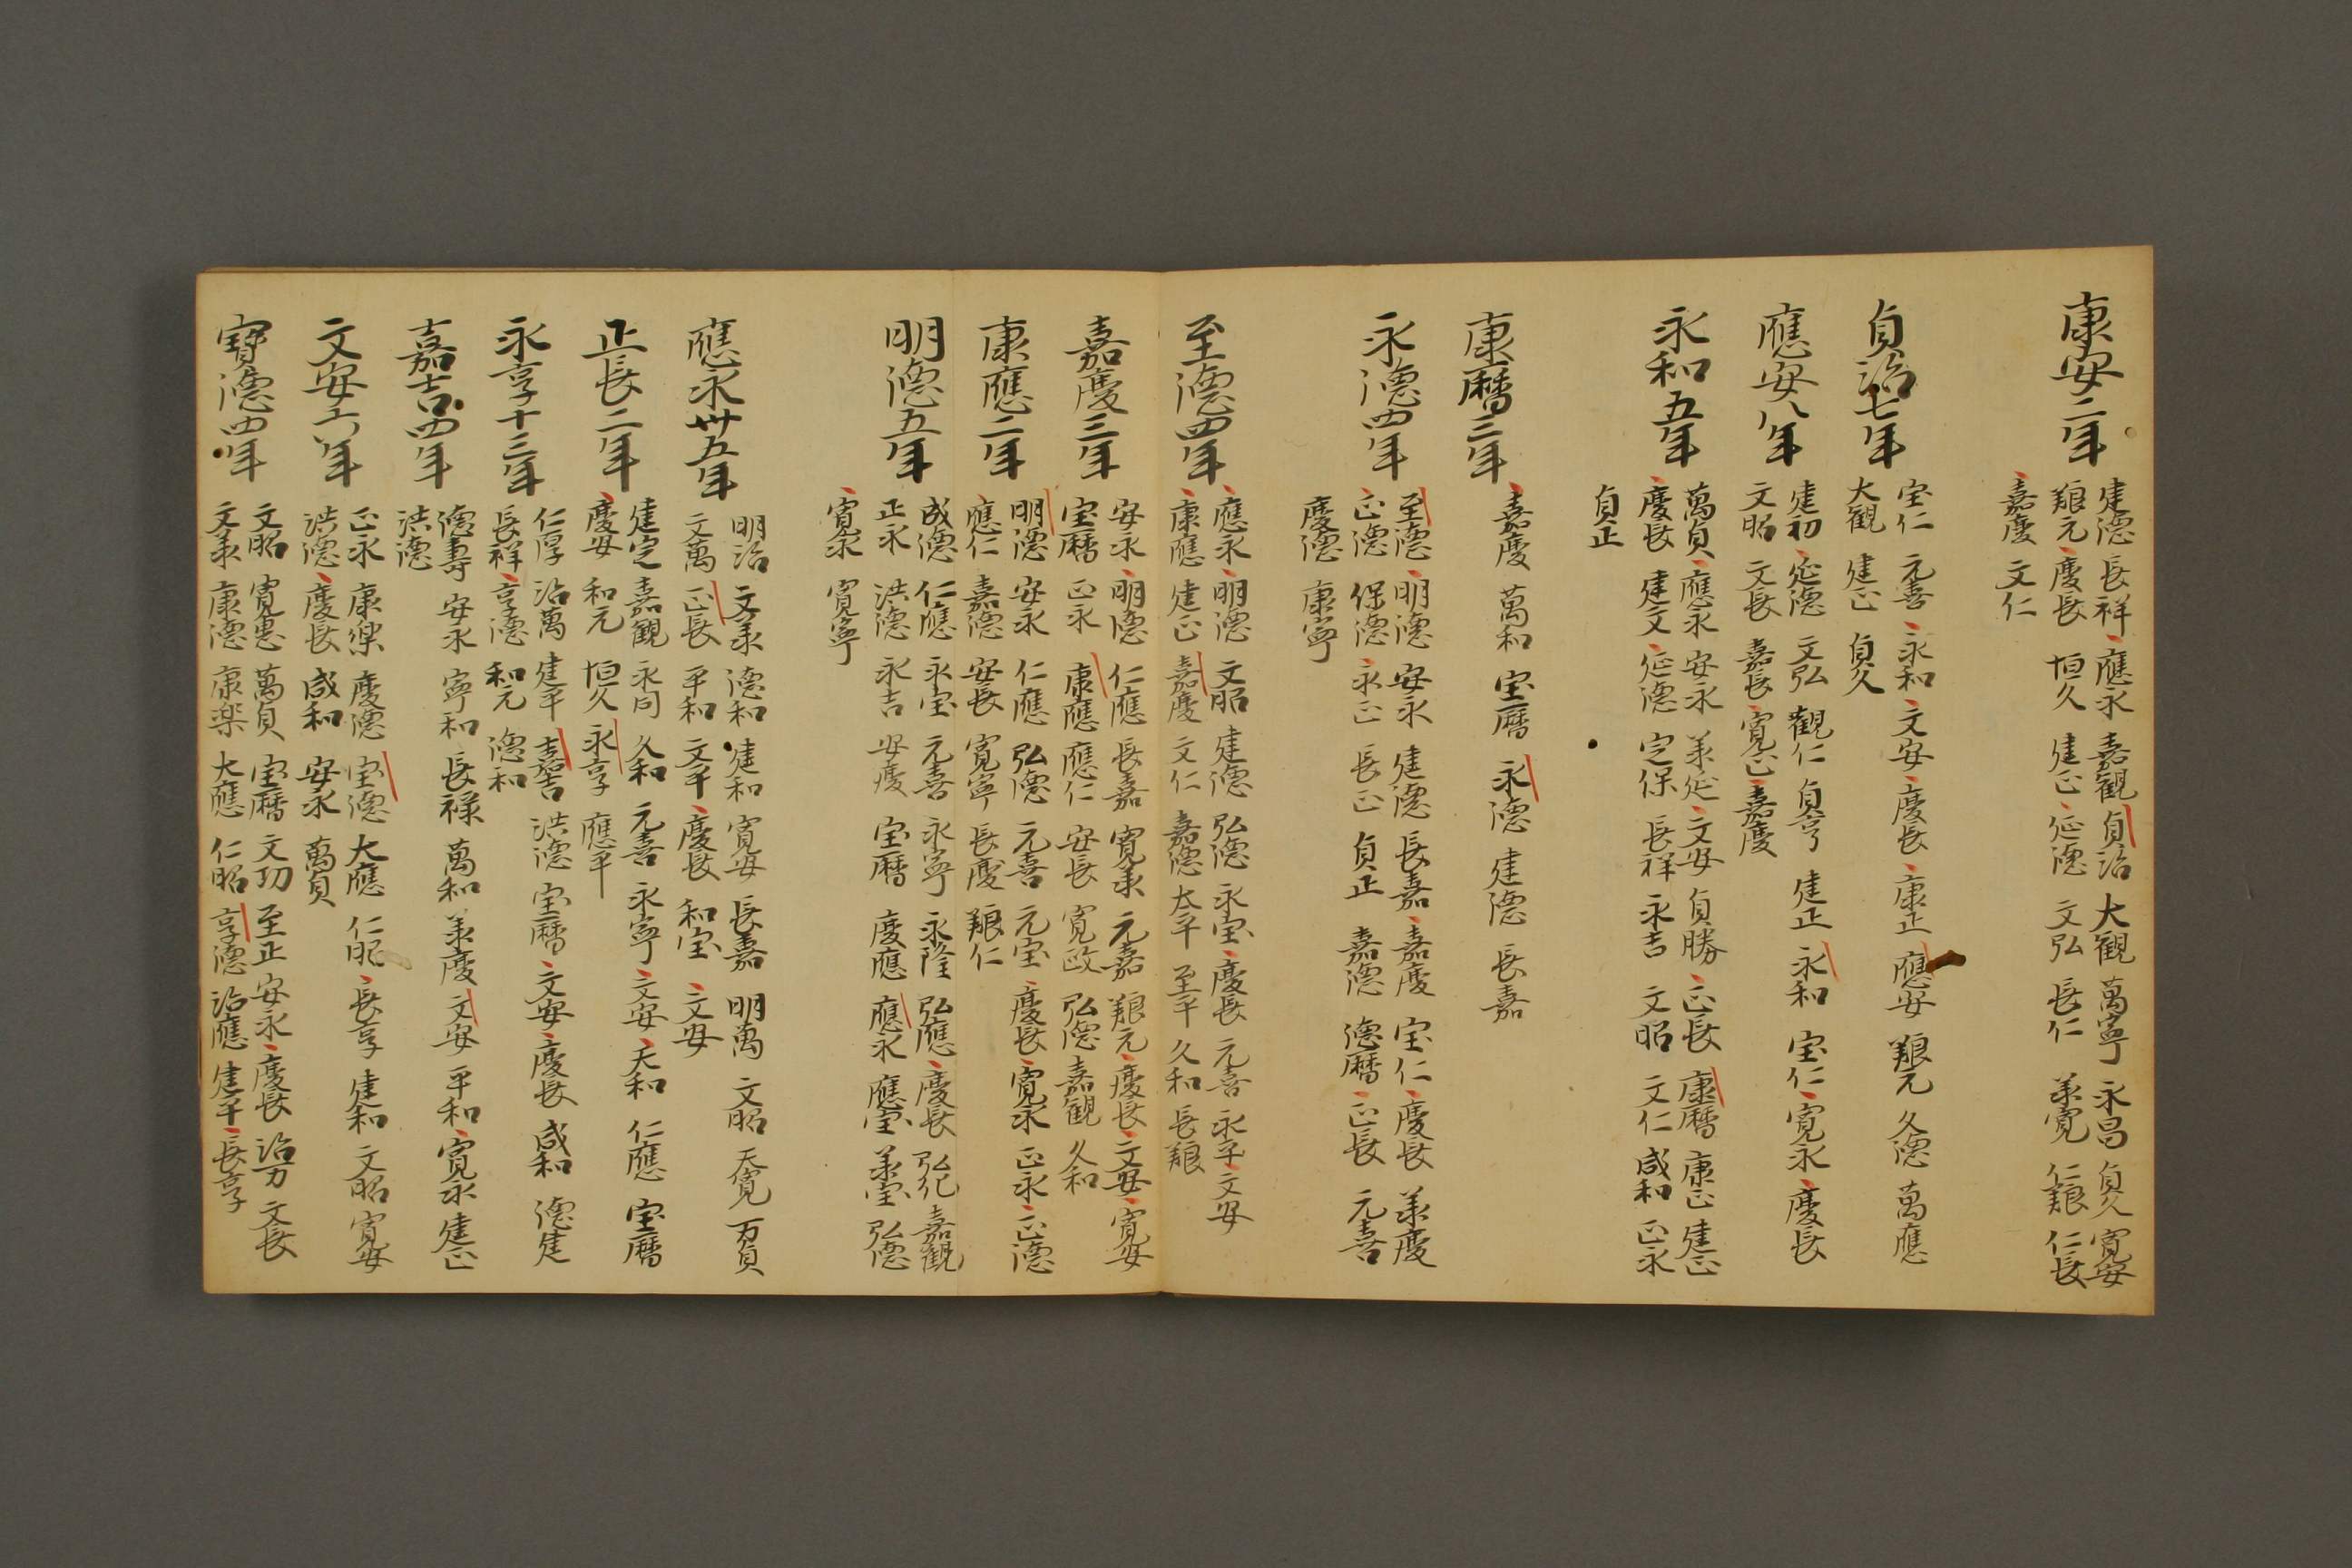 康安二年
建德 長祥 應永 嘉觀 貞治 大觀 萬寧 永昌 貞久 寛安
艱元 慶長 恒久 建正 延德 文弘 長仁 承寛 仁艱 仁長
嘉慶 文仁
貞治七年
宝仁 元喜 永和 文安 慶長 康正 應安 艱元 久德 萬應
大觀 建正 貞久
應安八年
建初 延德 文弘 觀仁 貞亨 建正 永和 宝仁 寛永 慶長
文昭 文長 嘉長 寛正 嘉慶
永和五年
萬貞 應永 安永 承延 文安 貞勝 正長 康暦 康正 建正
慶長 建文 延德 定保 長祥 永吉 文昭 文仁 咸和 正永
貞正
康暦三年
嘉慶 萬和 宝暦 永德 建德 長嘉
永德四年
至德 明德 安永 建德 長嘉 嘉慶 宝仁 慶長 承慶
正德 保德 永正 長正 貞正 嘉德 德暦 正長 元喜
慶德 康寧
至德四年
應永 明德 文昭 建德 弘德 永宝 慶長 元喜 永平 文安
康應 建正 嘉慶 文仁 嘉德 太平 至平 久和 長艱
嘉慶三年
安永 明德 仁應 長嘉 寛永 元嘉 艱元 慶長 文安 寛安
宝暦 正永 康應 應仁 安長 寛政 弘德 嘉觀 久和
康應二年
明德 安永 仁應 弘德 元喜 元宝 慶長 寛永 正永 正德
應仁 嘉德 安長 寛寧 長慶 艱仁
明德五年
成德 仁應 永宝 元喜 永寧 永隆 弘應 慶長 弘化 嘉觀
正永 洪德 永吉 安慶 宝暦 慶應 應永 應宝 承宝 弘德
寛永 寛寧
應永卅五年
明治 文承 德和 建和 寛安 長嘉 明萬 文昭 天寛 万貞
文萬 正長 平和 文平 慶長 和宝 文安
正長二年
建定 嘉觀 永同 久和 元喜 永寧 文安 天和 仁應 宝暦
慶安 和元 恒久 永享 應平
永享十三年
仁厚 治萬 建平 嘉吉 洪德 宝暦 文安 慶長 咸和 德建
長祥 享德 和元 德和
嘉吉四年
德壽 安永 寧和 長禄 萬和 承慶 文安 平和 寛永 建正
洪德
文安六年
正永 康樂 慶德 宝德 大應 仁昭 長享 建和 文昭 寛安
洪德 慶長 咸和 安永 萬貞
寶德四年
文昭 寛惠 萬貞 宝暦 文功 至正 安永 慶長 治万 文長
文承 康德 康楽 大應 仁昭 享德 治應 建平 長享